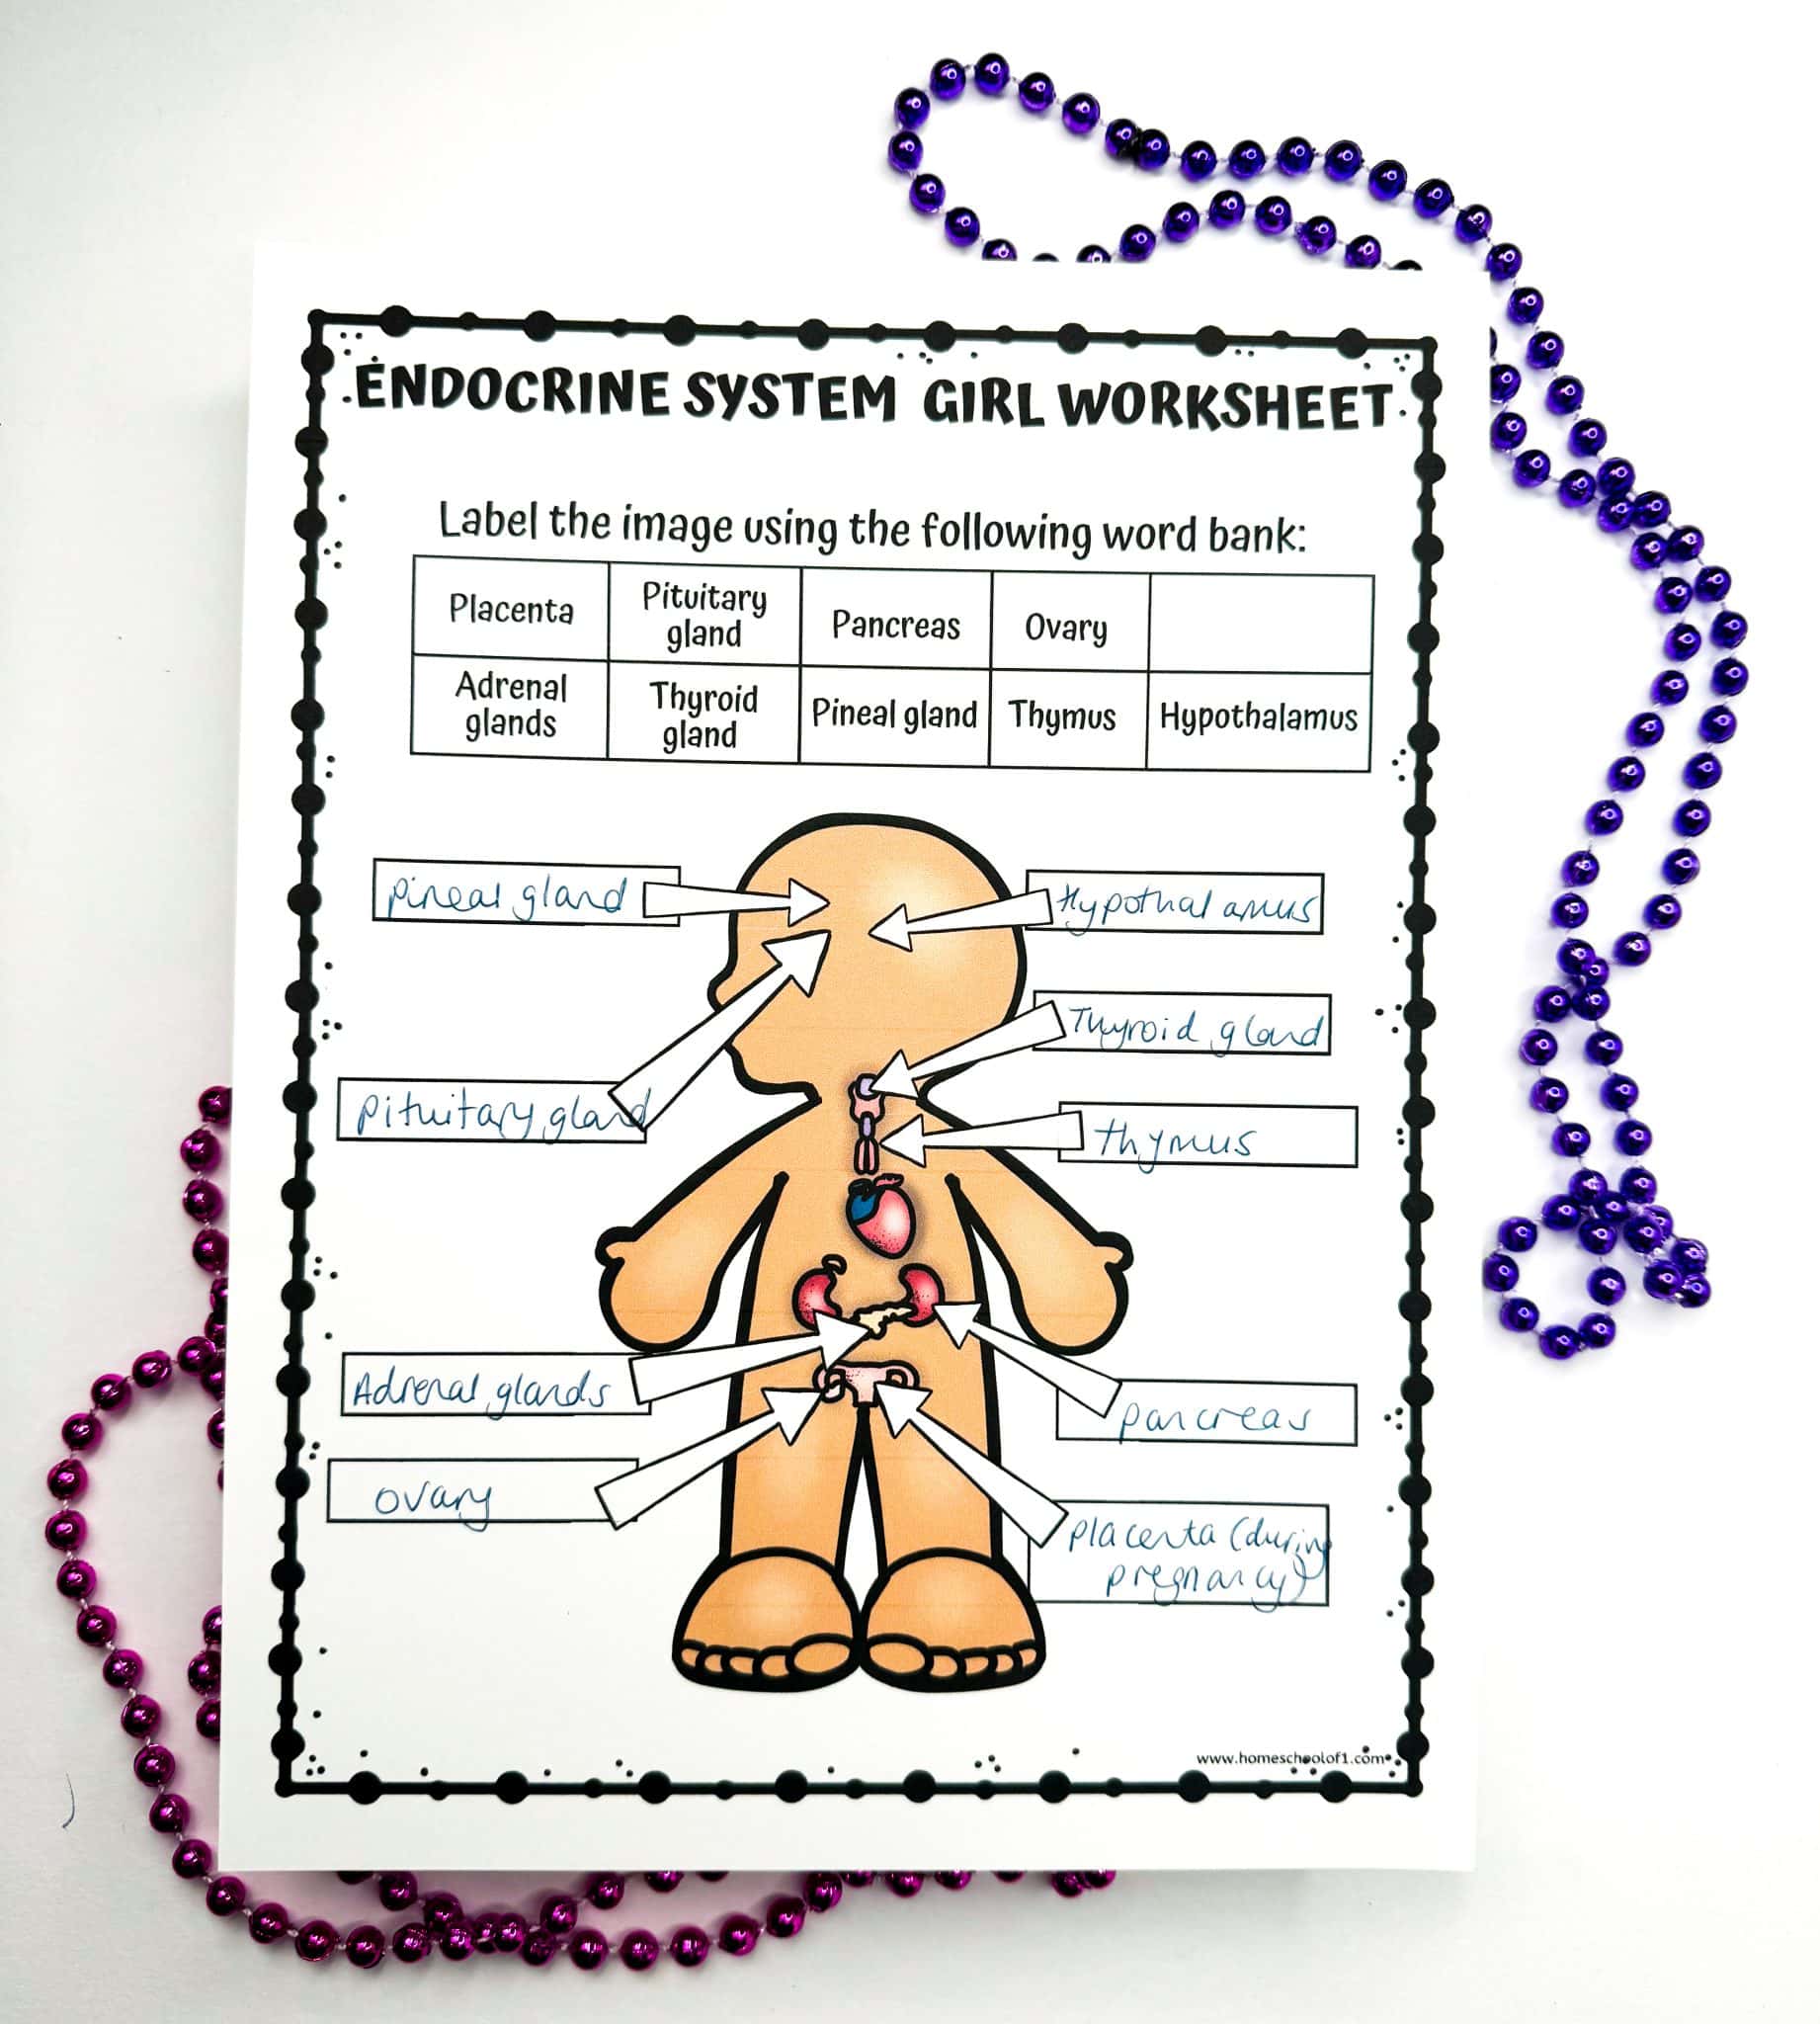 ENDOCRINE SYSTEM GIRL WORKSHEET
Label the image using the following word bank:
Placenta
Pituitary
gland
Pancreas
Ovary
Adrenal
glands
Thyroid
gland
Pineal gland
Thymus
Hypothalamus
pineal gland
Hypothalamus
Thyroid gland
pituitary gland
thymus
Adrenal glands
pancreas
ovary
placenta (during
pregnancy)
www.homeschoolof1.com